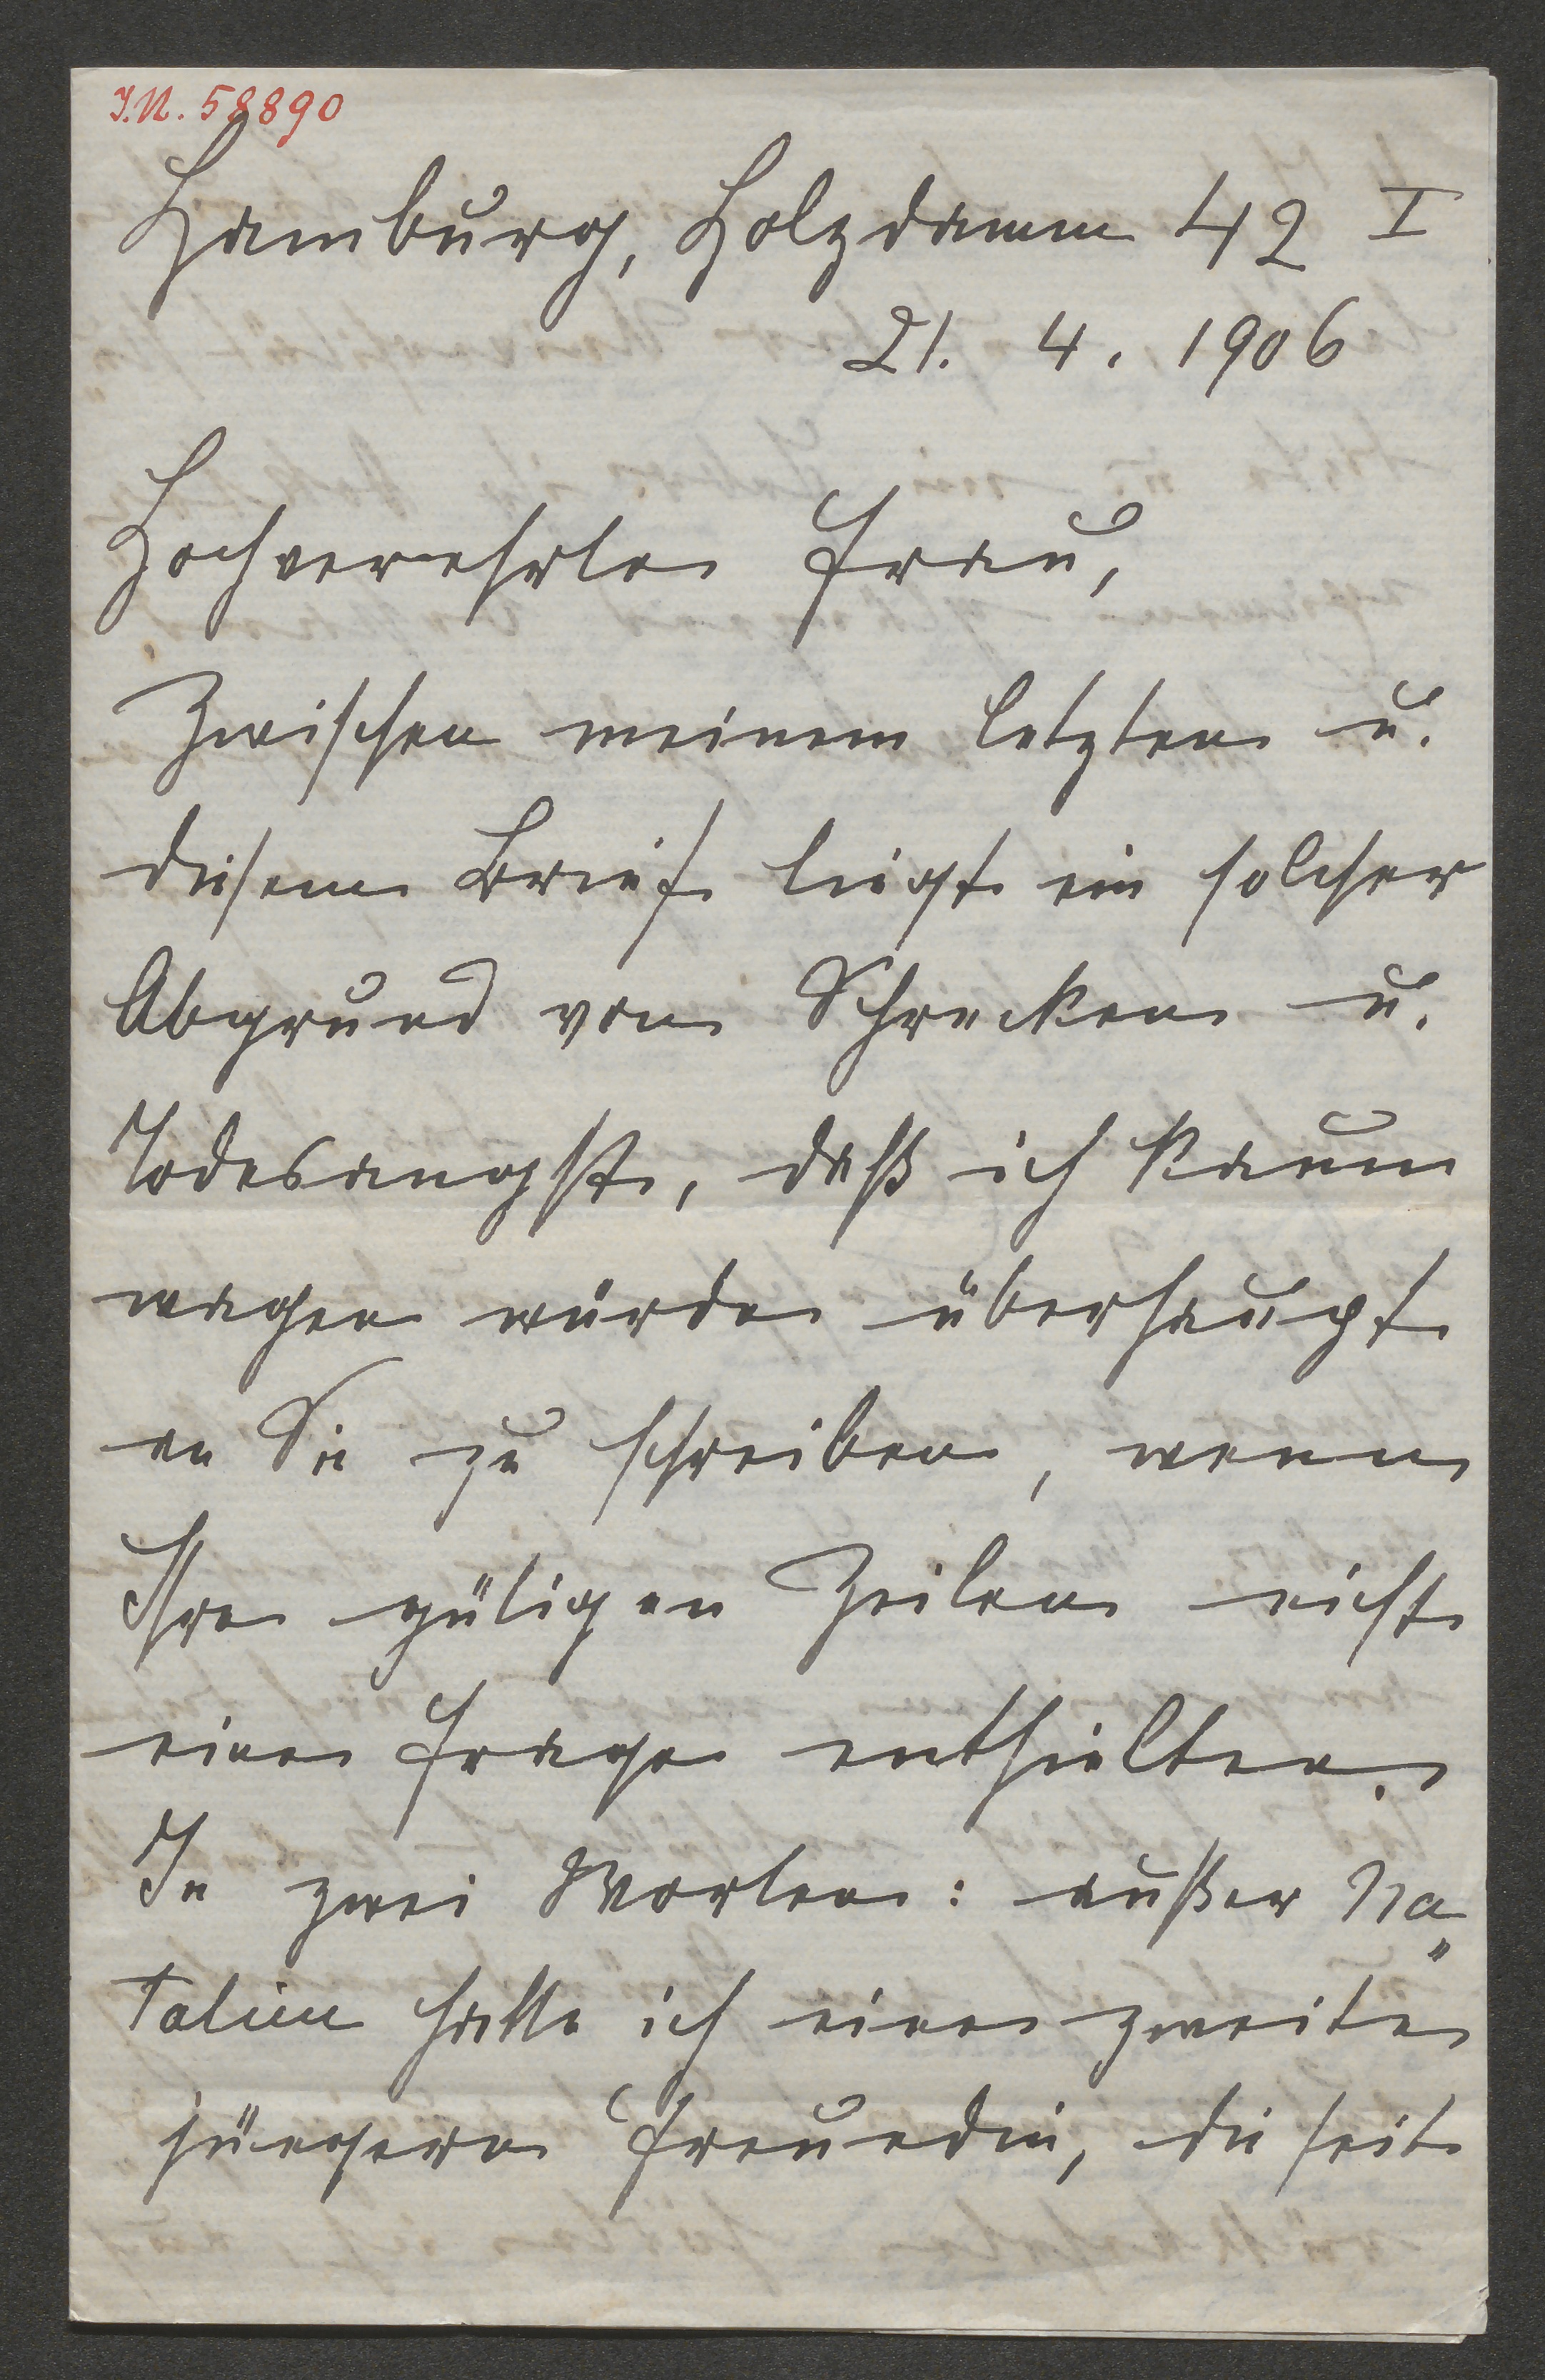 J.N. 58890
Hamburg, Holzdamm 42 I
21. 4. 1906
Hochverehrte Frau,
Zwischen meinem letzten u.
diesem Brief liegt ein solcher
Abgrund von Schrecken u.
Todesangst, daß ich kaum
wagen würde überhaupt
an Sie zu schreiben, wenn
Ihre gütigen Zeilen nicht
eine Frage enthielten.
In zwei Worten: außer Na-
talien hatte ich eine zweite
jüngere Freundin, die seit